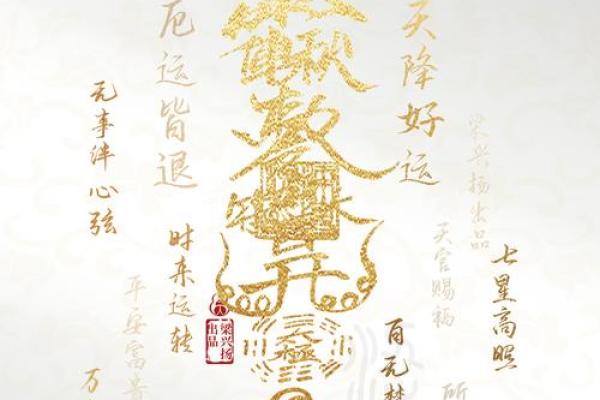 天降好运
厄运皆退
无事泮心弦
时来运转
七星高照
百无禁
天官赐福
梁兴扬出品
平安富贵
万
所
敕
太極
梁兴扬
出品